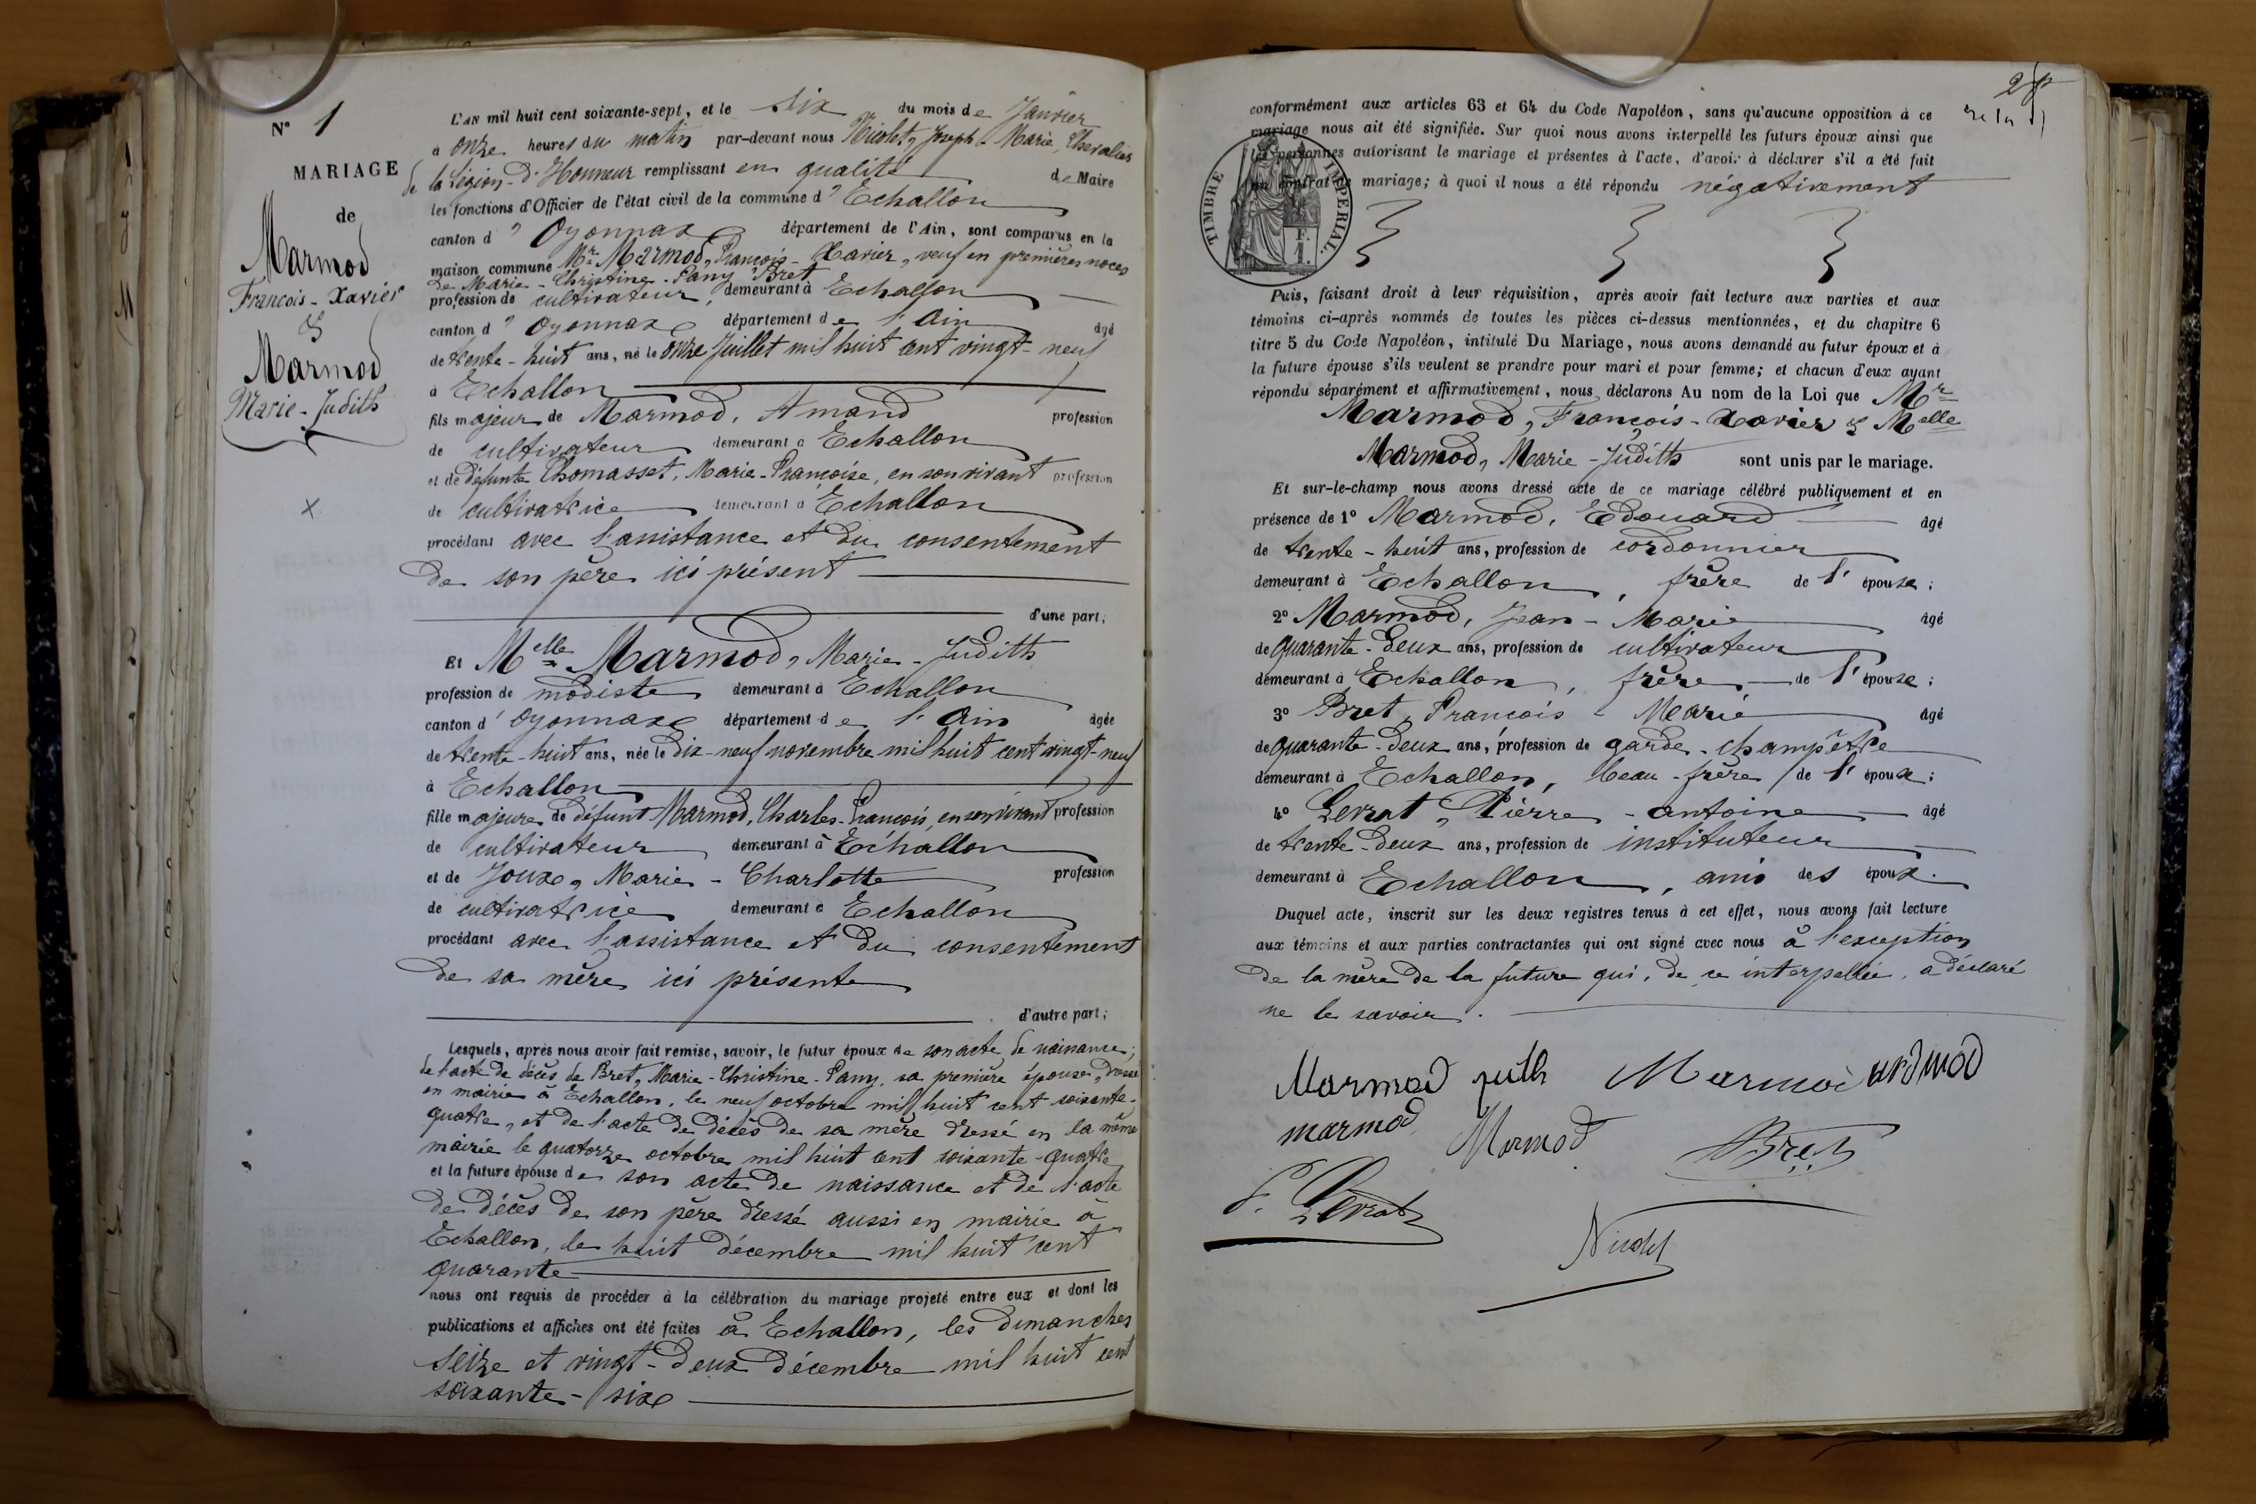 N° 1
MARIAGE
de
Marmod
François-Xavier
&
Marmod
Marie-Judith
L'AN mil huit cent soixante-sept, et le six du mois de Janvier
à onze heures du matin par-devant nous Nicolet, Joseph-Marie, Chevalier
de la Légion-d'Honneur remplissant en qualité de Maire
les fonctions d'Officier de l'état civil de la commune d' Echallon
canton d' Oyonnax département de l'Ain, sont comparus en la
maison commune Mr Marmod, François-Xavier, veuf en premières noces
de Marie-Christine-Fany Bret
profession de cultivateur, demeurant à Echallon
canton d' Oyonnax département de l'Ain âgé
de trente-huit ans, né le onze Juillet mil huit cent vingt-neuf
à Echallon
fils majeur de Marmod, Amand profession
de cultivateur demeurant à Echallon
et de défunte Thomasset, Marie-Françoise, en son vivant profession
de cultivatrice demeurant à Echallon
procédant avec l'assistance et du consentement
de son père ici présent
d'une part;
Et Melle Marmod, Marie-Judith
profession de modiste demeurant à Echallon
canton d' Oyonnax département de l'Ain âgée
de trente-huit ans, née le dix-neuf novembre mil huit cent vingt-neuf
à Echallon
fille majeure de défunt Marmod, Charles-François, en son vivant profession
de cultivateur demeurant à Echallon
et de Joux, Marie-Charlotte profession
de cultivatrice demeurant à Echallon
procédant avec l'assistance et du consentement
de sa mère ici présente
d'autre part;
Lesquels, après nous avoir fait remise, savoir, le futur époux de son acte de naissance;
de l'acte de décès de Bret, Marie-Christine-Fany, sa première épouse, dressé
en mairie à Echallon, le neuf octobre mil huit cent soixante-
quatre, et de l'acte de décès de sa mère dressé en la même
mairie le quatorze octobre mil huit cent soixante-quatre
et la future épouse de son acte de naissance et de l'acte
de décès de son père dressé aussi en mairie à
Echallon, le huit décembre mil huit cent
quarante
nous ont requis de procéder à la célébration du mariage projeté entre eux et dont les
publications et affiches ont été faites à Echallon, les dimanches
seize et vingt-deux décembre mil huit cent
soixante-six
conformément aux articles 63 et 64 du Code Napoléon, sans qu'aucune opposition à ce
mariage nous ait été signifiée. Sur quoi nous avons interpellé les futurs époux ainsi que
les personnes autorisant le mariage et présentes à l'acte, d'avoir à déclarer s'il a été fait
un contrat de mariage; à quoi il nous a été répondu négativement
TIMBRE IMPERIAL
F. 1.
Puis, faisant droit à leur réquisition, après avoir fait lecture aux parties et aux
témoins ci-après nommés de toutes les pièces ci-dessus mentionnées, et du chapitre 6
titre 5 du Code Napoléon, intitulé Du Mariage, nous avons demandé au futur époux et à
la future épouse s'ils veulent se prendre pour mari et pour femme; et chacun d'eux ayant
répondu séparément et affirmativement, nous déclarons Au nom de la Loi que Mr
Marmod, François-Xavier & Melle
Marmod, Marie-Judith sont unis par le mariage.
Et sur-le-champ nous avons dressé acte de ce mariage célébré publiquement et en
présence de 1° Marmod, Edouard âgé
de trente-huit ans, profession de cordonnier
demeurant à Echallon, frère de l'épouse;
2° Marmod, Jean-Marie âgé
de quarante-deux ans, profession de cultivateur
demeurant à Echallon, frère de l'épouse;
3° Bret, François-Marie âgé
de quarante-deux ans, profession de garde-champêtre
demeurant à Echallon, beau-frère de l'époux;
4° Levrat, Pierre-antoine âgé
de trente-deux ans, profession de instituteur
demeurant à Echallon, ami des époux.
Duquel acte, inscrit sur les deux registres tenus à cet effet, nous avons fait lecture
aux témoins et aux parties contractantes qui ont signé avec nous à l'exception
de la mère de la future qui, de ce interpellée, a déclaré
ne le savoir.
Marmod Marmod
marmod Marmod Bret
P. Levrat
Nicolet